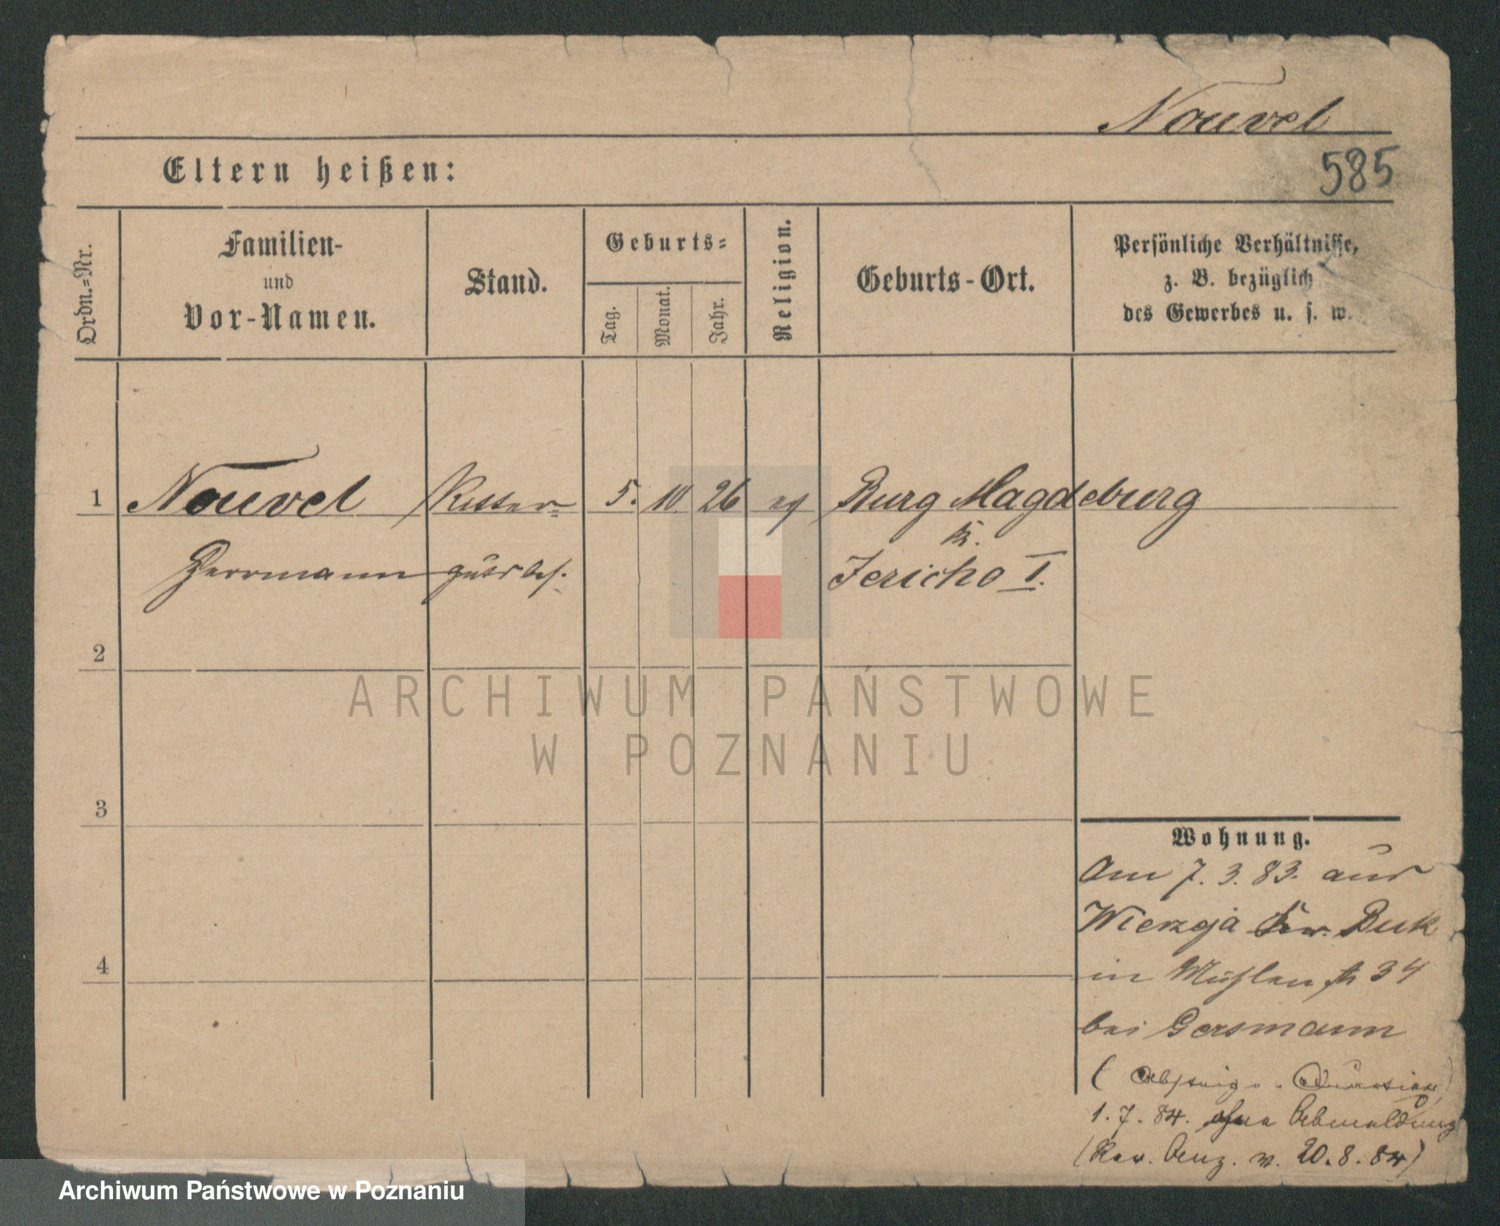 Nouvel
585
Eltern heißen:
Ordn.-Nr.
Familien-
und
Vor-Namen.
Stand.
Geburts-
Tag.
Monat.
Jahr.
Religion.
Geburts-Ort.
Persönliche Verhältnisse,
z. B. bezüglich
des Gewerbes u. s. w.
1 Nouvel Ritter- 5. 10 26 ev Burg Magdeburg
Kr.
Herrmann gutsbes. Jericho I.
2
3
4
ARCHIWUM PAŃSTWOWE
W POZNANIU
Wohnung.
Am 7. 3. 83. aus
Wierzeja Kr. Buk
in Mühlenstr 34
bei Gersmann
(
1. 7. 84. ohne Abmeldung
(Rev. Anz. v. 20. 8. 84)
Archiwum Państwowe w Poznaniu